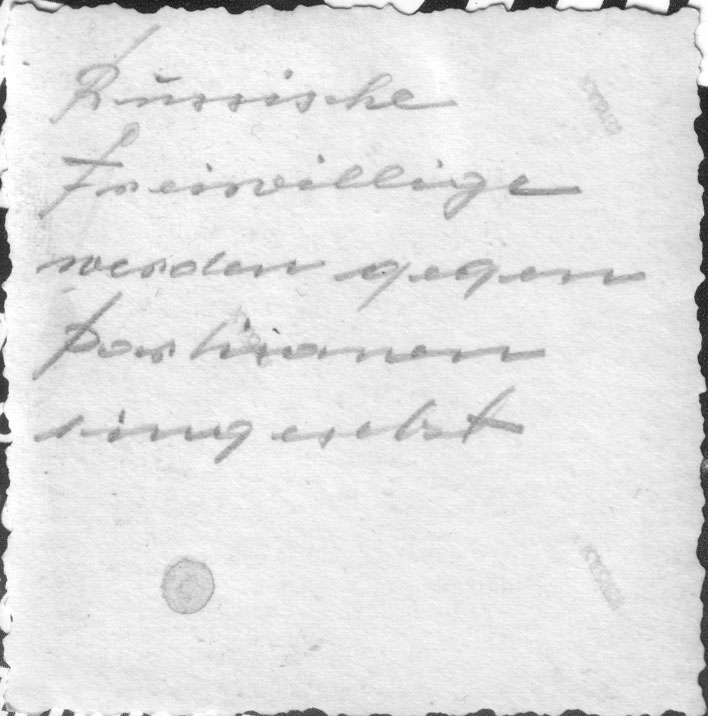 Russische
Freiwillige
werden gegen
Partisanen
eingesetzt